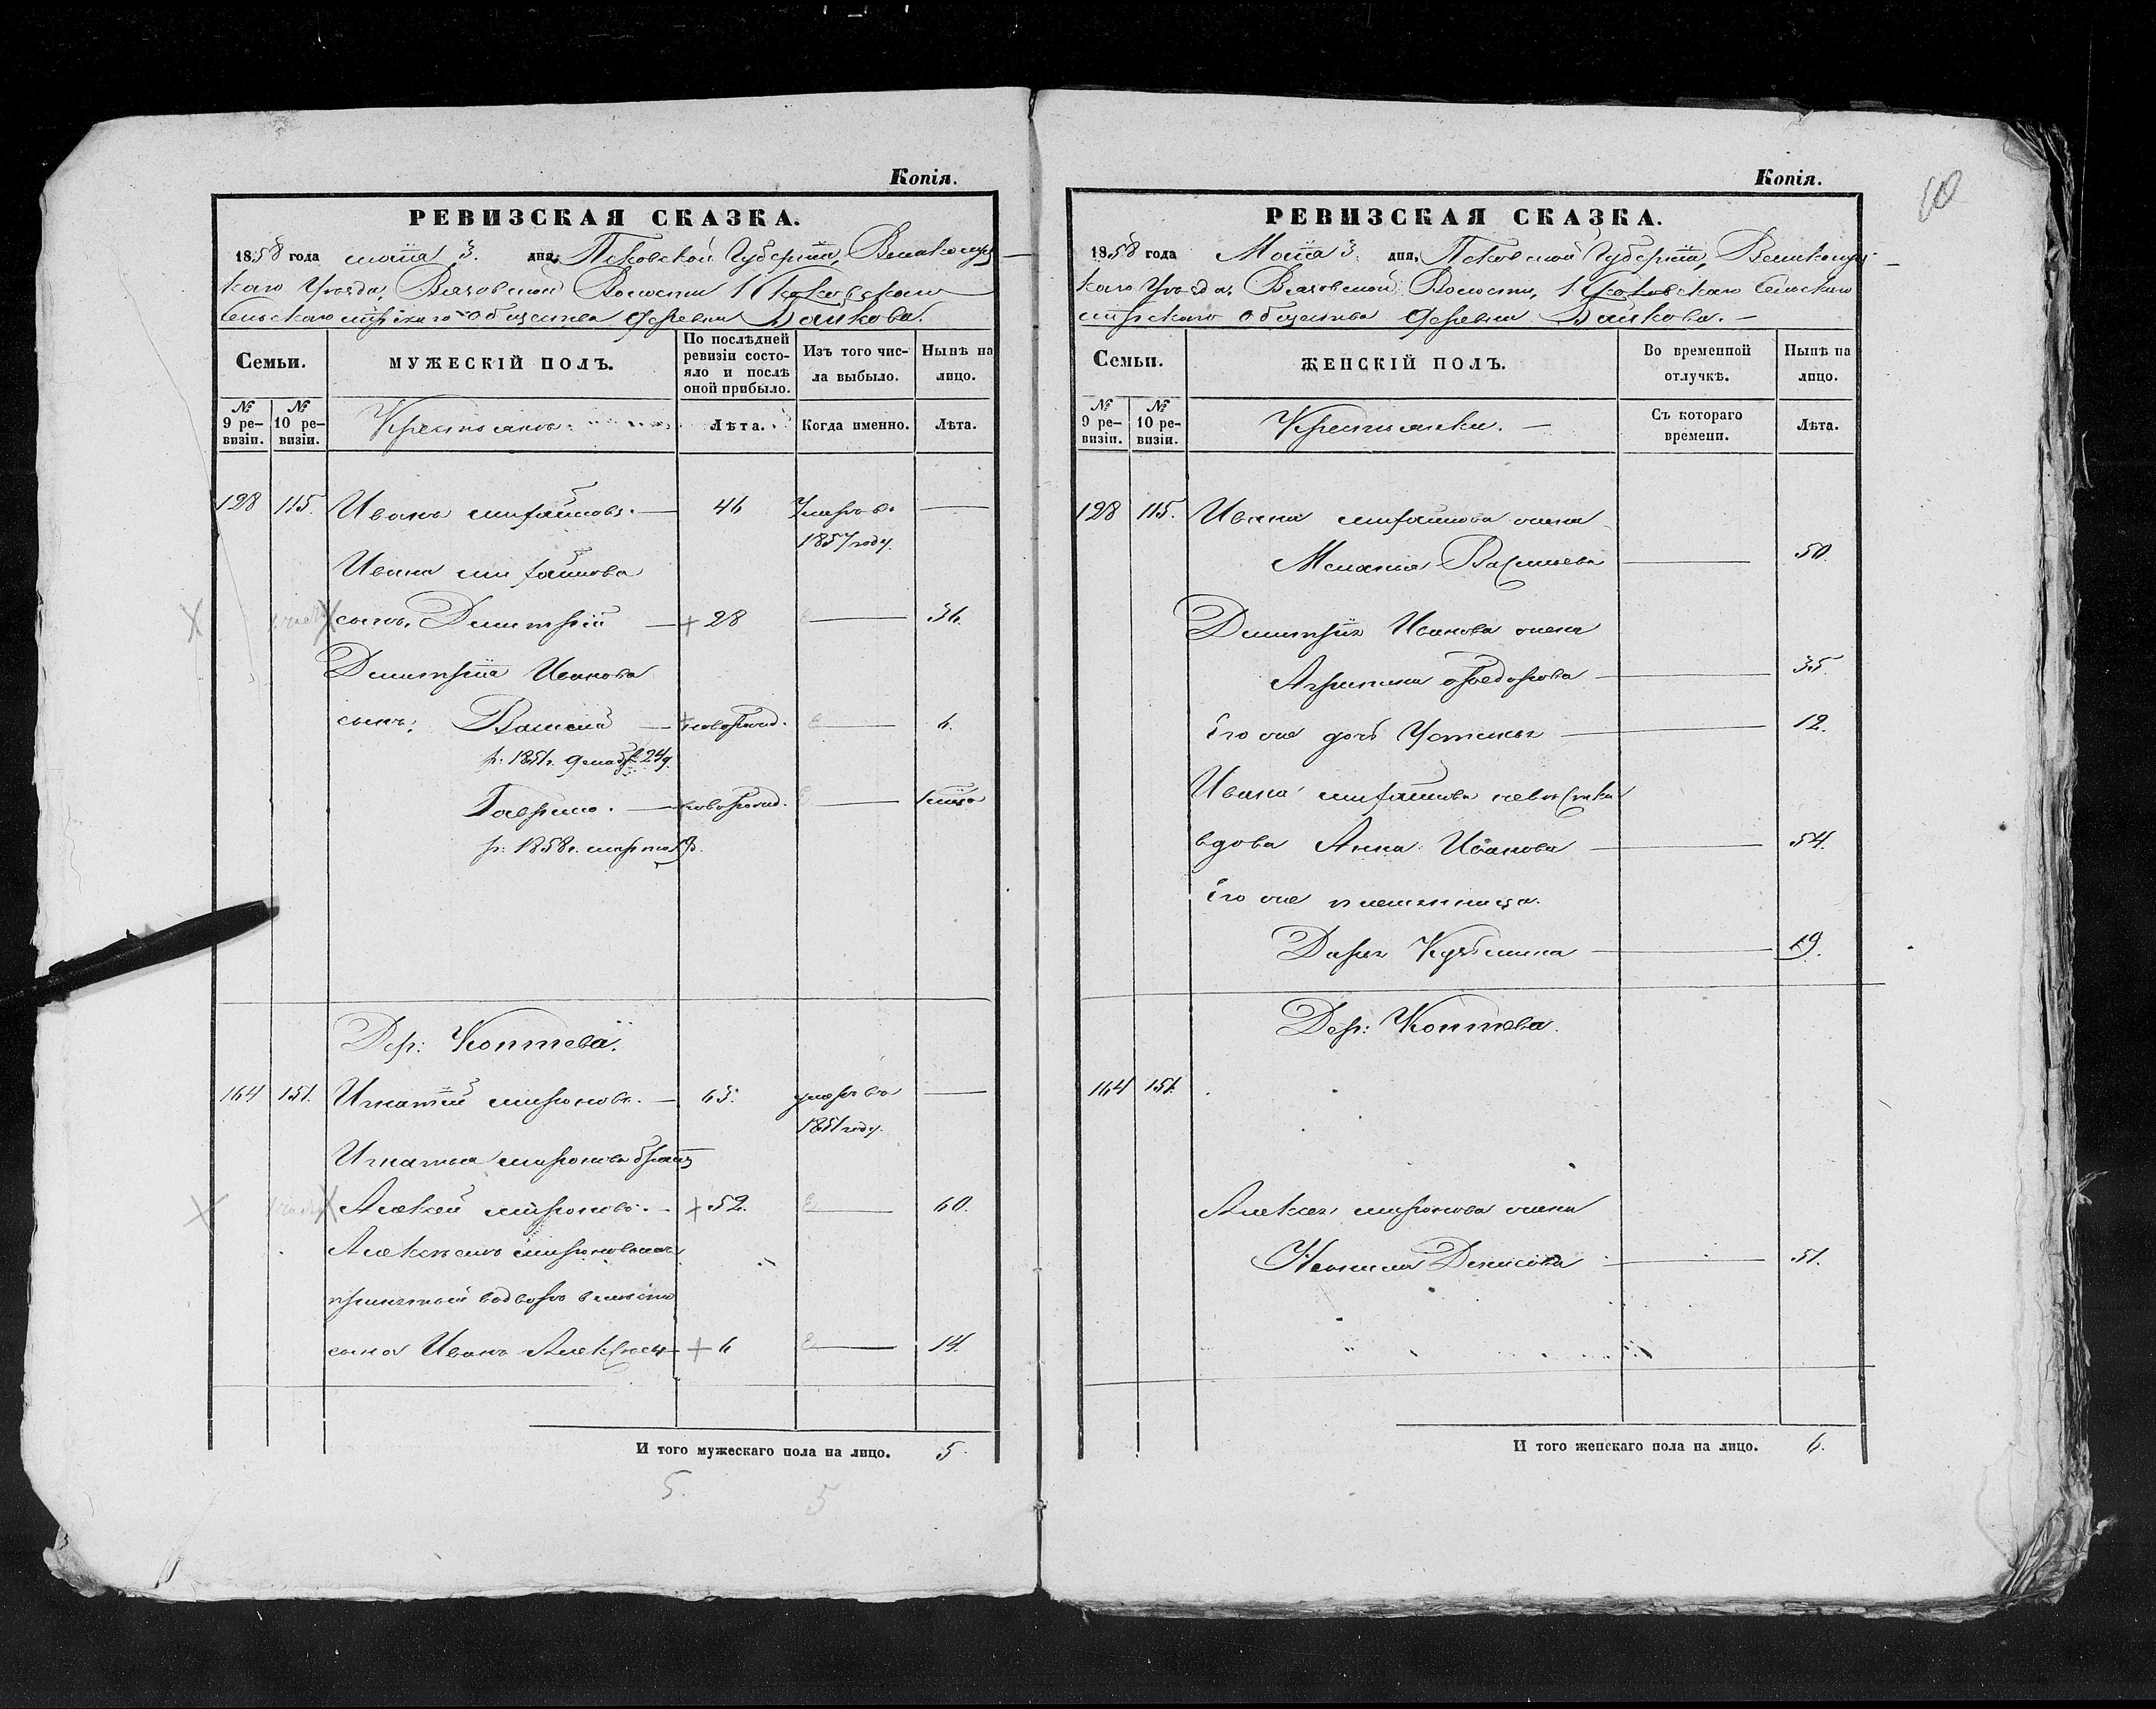 Копія.
РЕВИЗСКАЯ СКАЗКА.
1858 года маіа 3. дня, Псковской Губерніи, Великолуц
каго Уѣзда, Вязовской Волости
Сельскаго мірскаго Общества деревни
Семьи.
МУЖЕСКІЙ ПОЛЪ.
По послѣдней ревизіи состо-яло и послѣ оной прибыло.
Изъ того чис-ла выбыло.
Нынѣ на лицо.
№ 9 ре-визіи.
№ 10 ре-визіи.
Крестьянъ.
Лѣта.
Когда именно.
Лѣта.
128 115. Иванъ Михайловъ. — 46 Умеръ въ —
1857 году.
Ивана Михайлова
сынъ, Дмитрій — + 28 — 36.
Дмитрія Иванова
сынъ: Василій — новорожд. — 6.
р: 1851 г. декабр 24 д.
Гаврило. — новорожд. —
р: 1858 г. марта
Дер: Коптева.
164 151. Игнатій Мироновъ. — 63. умеръ въ —
1851 году.
Игнатья Миронова братъ
Алексѣй Мироновъ. — + 52. — 60.
Алексѣемъ Мироновымъ
принятый во дворъ вмѣсто
сына Иванъ Алексѣевъ + 6 — 14.
И того мужескаго пола на лицо. 5.
5. 5
Копія.
10
РЕВИЗСКАЯ СКАЗКА.
1858 года Маіа 3 дня, Псковской Губерніи, Великолуц
каго Уѣзда, Вязовской Волости, Сельскаго
мірскаго Общества деревни
Семьи.
ЖЕНСКІЙ ПОЛЪ.
Во временной отлучкѣ.
Нынѣ на лицо.
№ 9 ре-визіи.
№ 10 ре-визіи.
Крестьянки. —
Съ котораго времени.
Лѣта.
128 115. Ивана Михайлова жена
Меланья Васильева — 50.
Дмитрія Иванова жена
Агрипина Ѳедорова — 35.
Его же дочь Устинья — 12.
Ивана Михайлова невѣстка
вдова Анна Иванова — 54.
Его же племянница.
Дарья Кузьмина — 19.
Дер: Коптева.
164 151.
Алексѣя Миронова жена
Ненила Денисова — 51.
И того женскаго пола на лицо. 6.